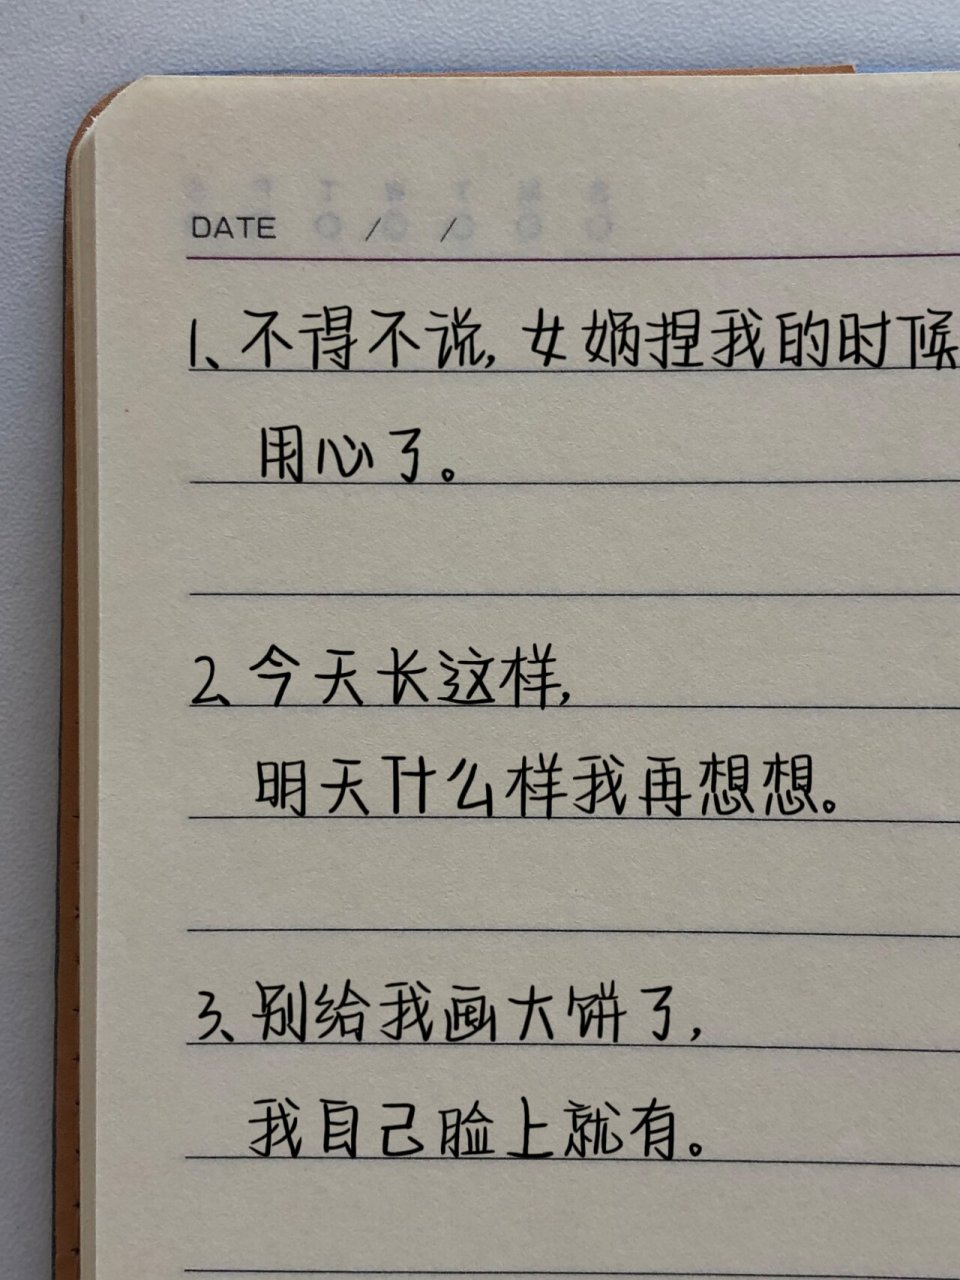 DATE / /
1、不得不说,女娲捏我的时候
用心了。
2、今天长这样,
明天什么样我再想想。
3、别给我画大饼了,
我自己脸上就有。